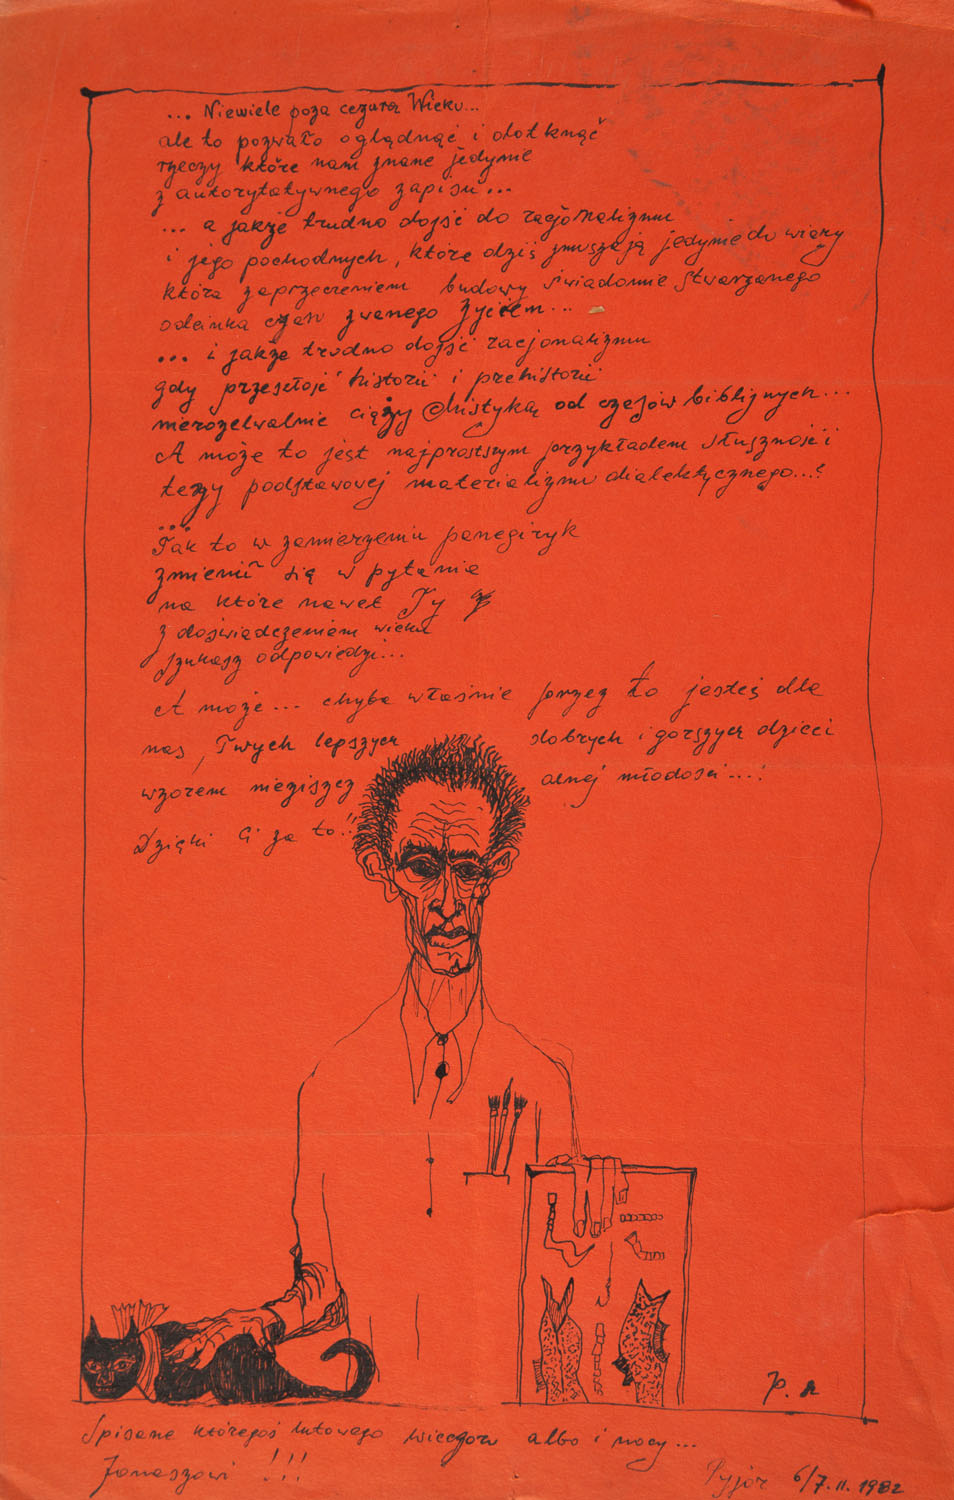 ... Niewiele poza cezurą Wieku...
ale to pozwało oglądnąć i dotknąć
rzeczy które nam znane jedynie
z autorytatywnego zapisu...
... a jakże trudno dojść do racjonalizmu
i jego pochodnych, które dziś zmuszają jedynie do wiary
która zaprzeczeniem budowy świadomie stwarzanego
odcinka czasu zwanego życiem...
... i jakże trudno dojść racjonalizmu
gdy przeszłość historii i prehistorii
nierozelwalnie ciąży mistyką od czasów biblijnych...
A może to jest najprostszym przykładem słuszności
tezy podstawowej materializmu dialektycznego...?
...
Tak to w zamierzeniu panegiryk
zmienił się w pytania
na które nawet Ty
z doświadczeniem wieku
szukasz odpowiedzi...
A może... chyba właśnie przez to jesteś dla
nas, Twych lepszych dobrych i gorszych dzieci
wzorem niezniszcz alnej młodości...!
Dzięki Ci za to!!
P. A
Spisane któregoś lutowego wieczoru albo i nocy...
Jonaszowi !!!
6/7.II.1982